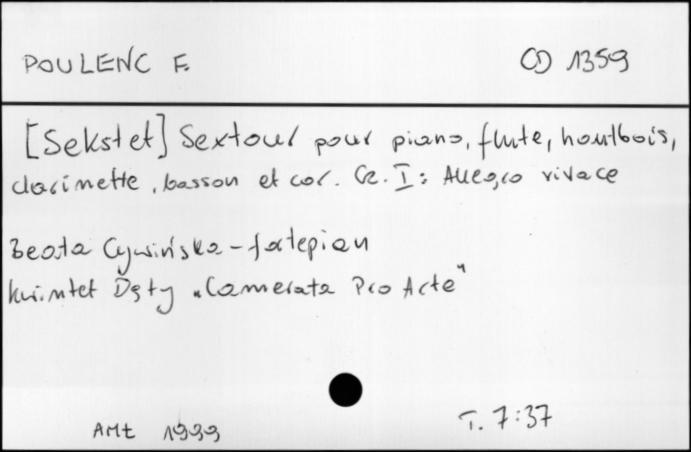 POULENC F. CD 1359
[Sekstet] Sextour pour piano, flute, houtbois,
clarinette, basson et cor. Cz. I: Allegro vivace
Beata Cywińska - fortepian
kwintet Dęty „Camerata Pro Arte"
AMt 1999 T. 7:37